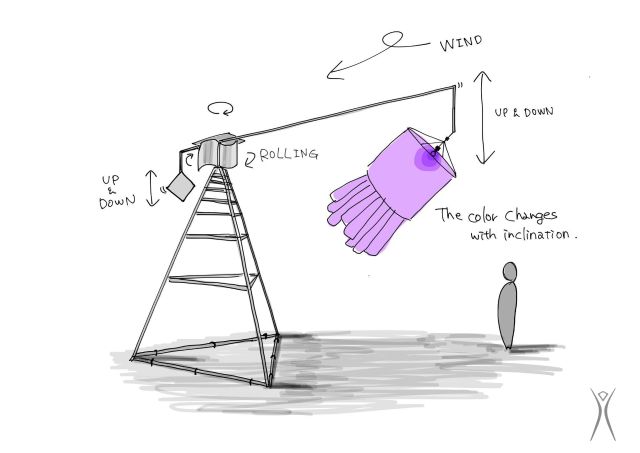 WIND
UP & DOWN
ROLLING
UP
&
DOWN
The color Changes
with inclination.